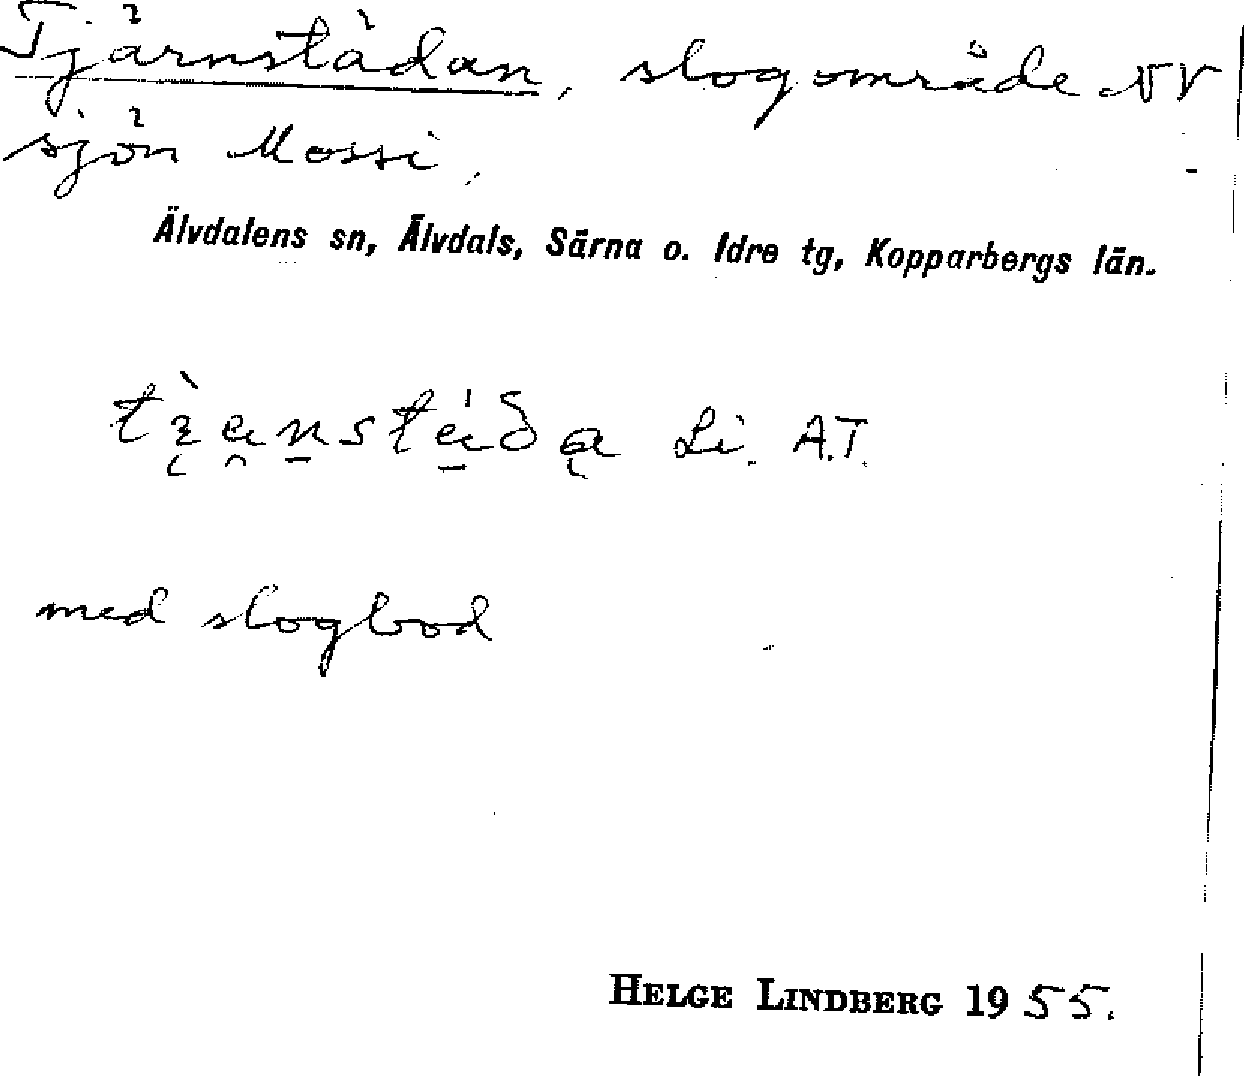 Tjärnstädan, slogområde NV
sjön Mossi,
Älvdalens sn, Älvdals, Särna o. Idre tg, Kopparbergs län.
Li. A.T.
med slogbod
HELGE LINDBERG 1955.